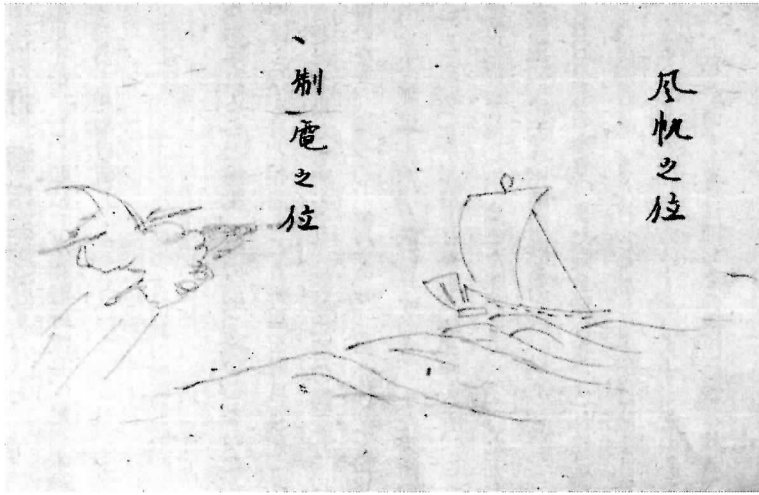 风帆之位
、制電之位